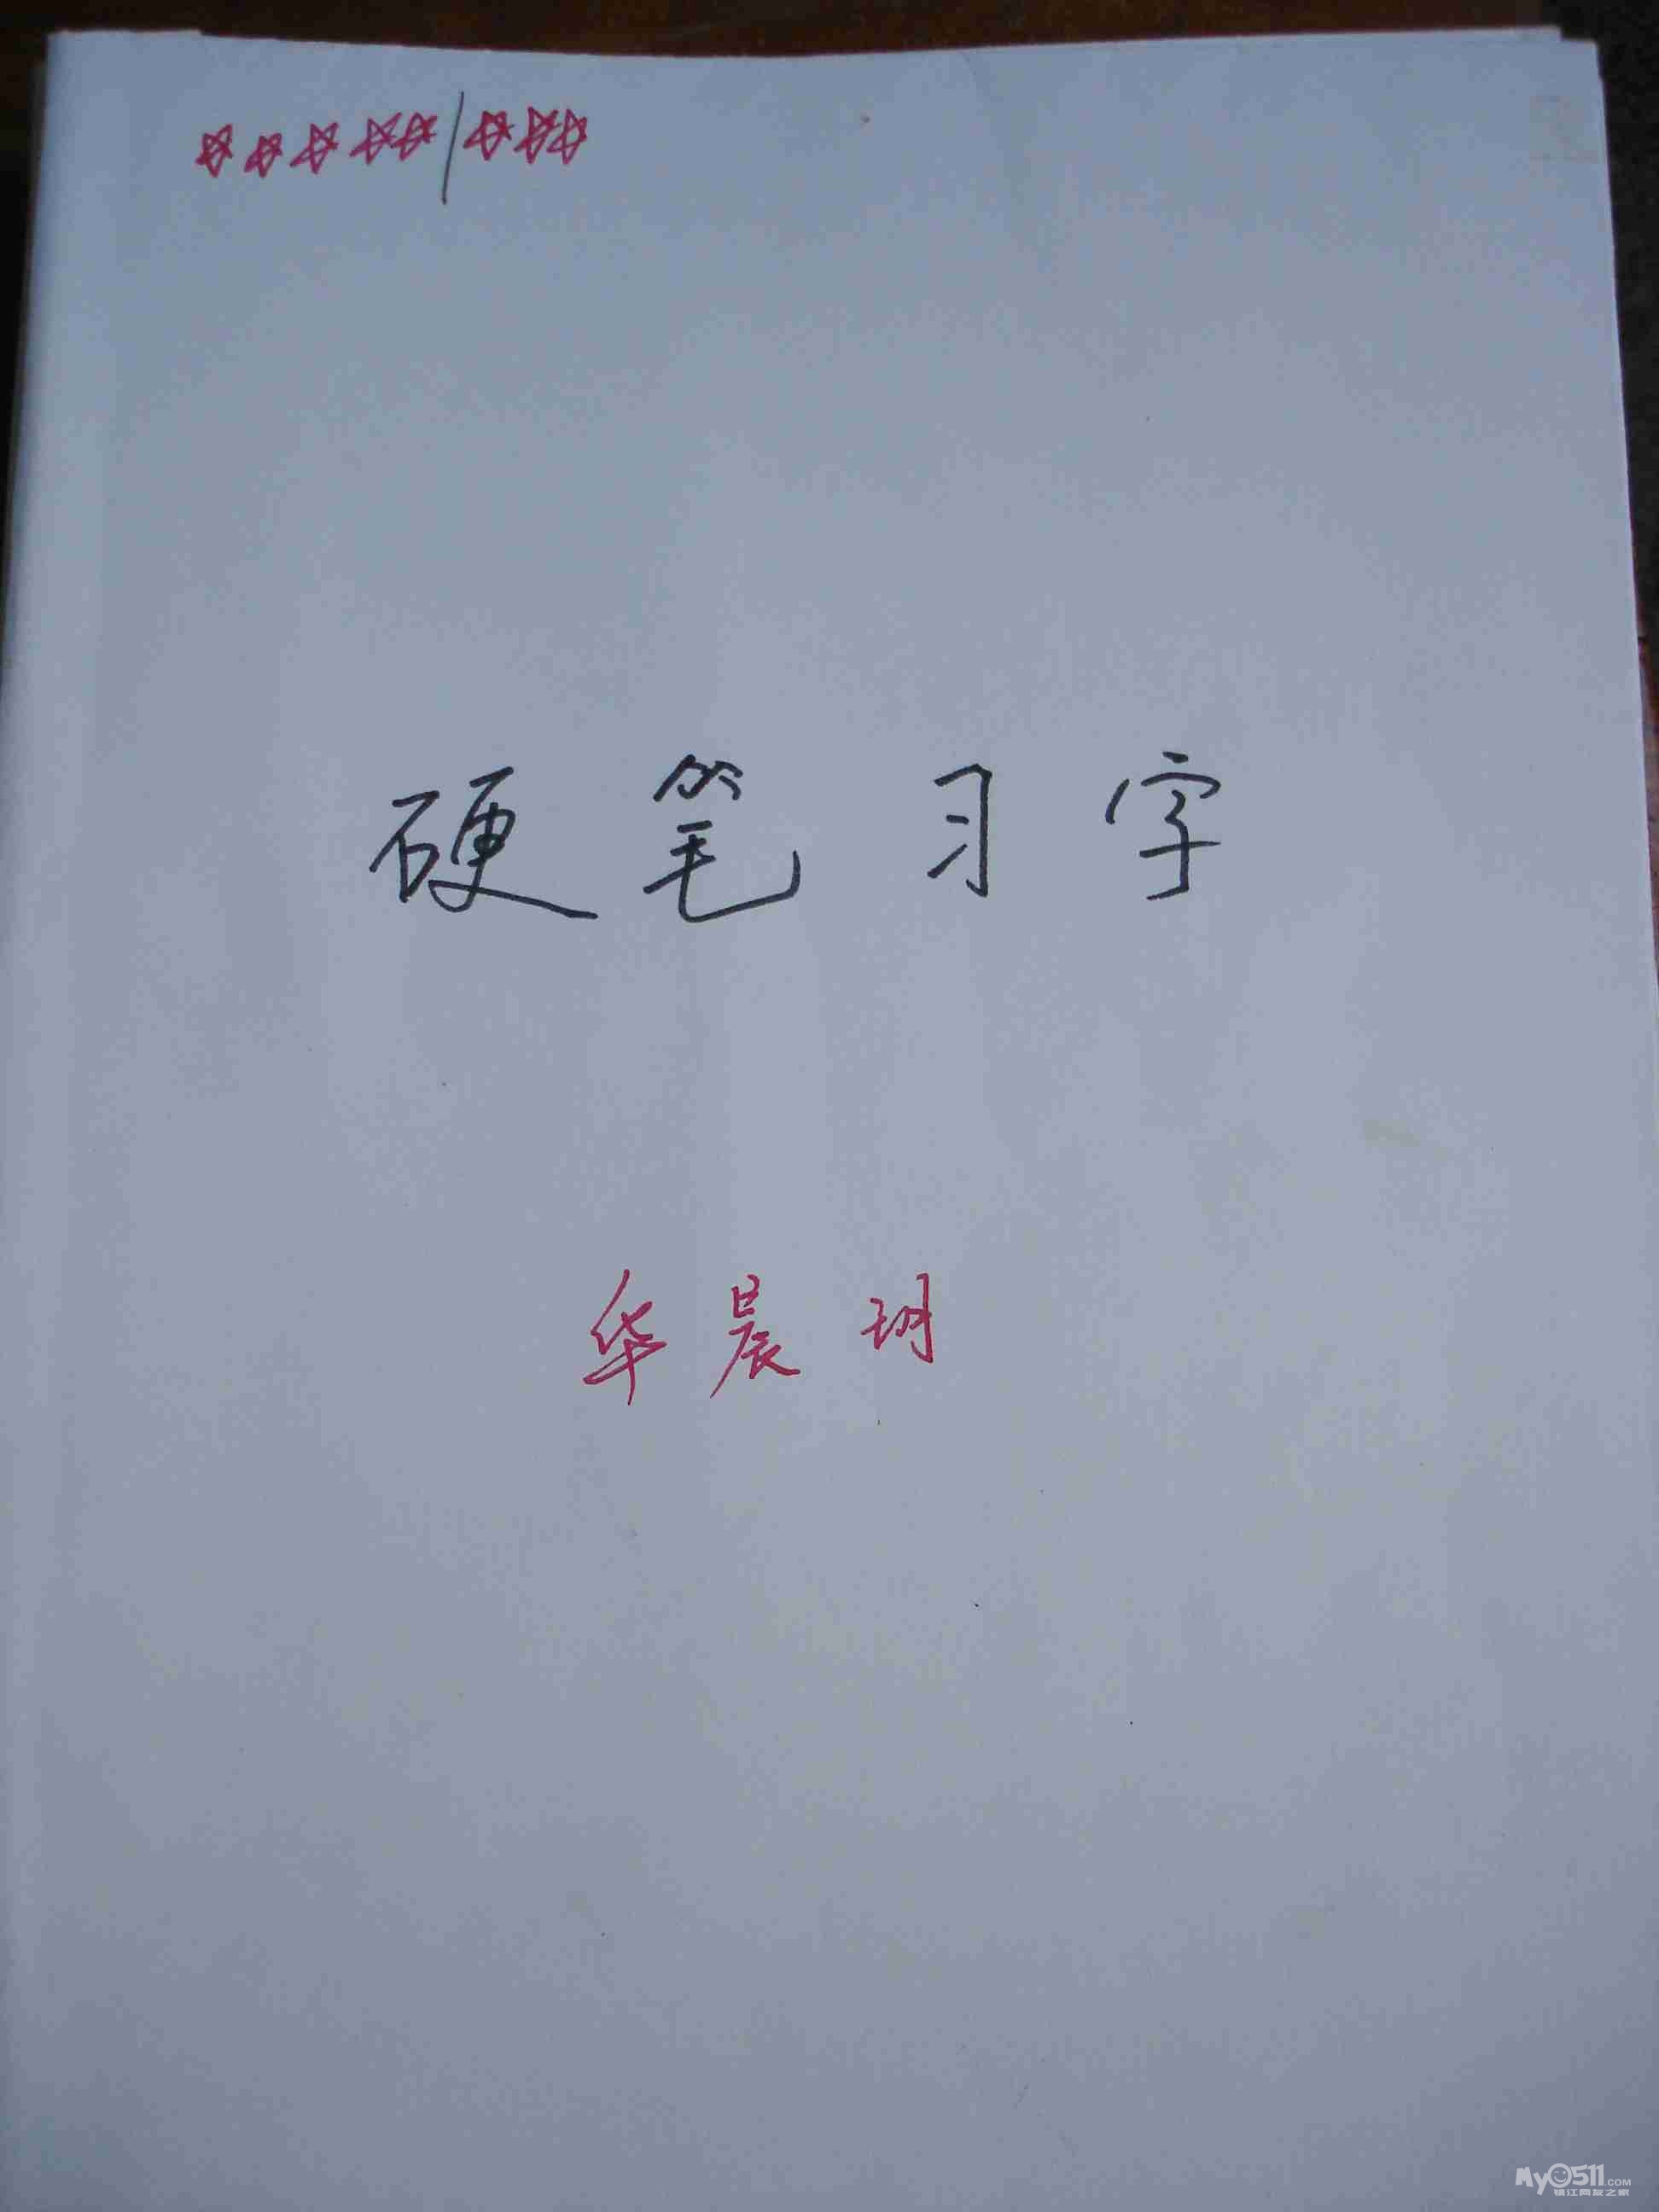 硬笔习字
华晨玥
My0511.com
镇江网友之家